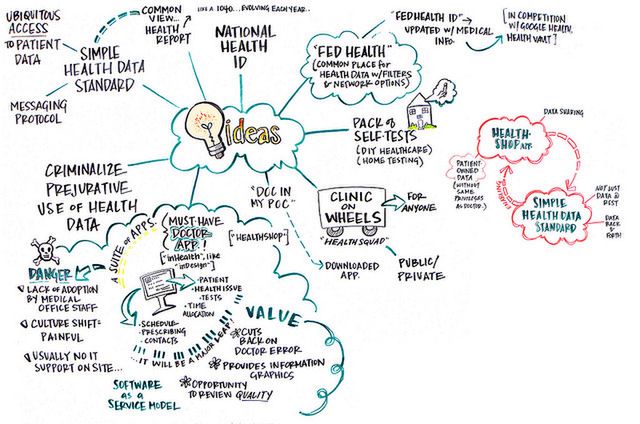 UBIQUITOUS
ACCESS
TO PATIENT
DATA
COMMON
VIEW...
HEALTH
REPORT
LIKE A 1040... EVOLVING EACH YEAR..
SIMPLE
HEALTH DATA
STANDARD
MESSAGING
PROTOCOL
NATIONAL
HEALTH
ID
ideas
"FED HEALTH"
(COMMON PLACE for
HEALTH DATA W/FILTERS
& NETWORK OPTIONS)
"FEDHEALTH ID"
UPDATED W/ MEDICAL
INFO.
[IN COMPETITION
W/ GOOGLE HEALTH,
HEALTH VAULT]
PACK of
SELF-TESTS
(DIY HEALTHCARE)
(HOME TESTING)
DATA SHARING
HEALTH-
SHOP APP.
PATIENT-
OWNED
DATA
(WITHOUT
SAME
PRIVILEGES
AS DOCTOR.)
SIMPLE
HEALTH DATA
STANDARD
NOT JUST
DATA @
REST
DATA
BACK &
FORTH
CRIMINALIZE
PREJURATIVE
USE OF HEALTH
DATA
"DOC IN
MY POC."
DOWNLOADED
APP.
CLINIC
ON
WHEELS
"HEALTH SQUAD"
FOR
ANYONE
PUBLIC/
PRIVATE
DANGER
LACK OF ADOPTION
BY MEDICAL
OFFICE STAFF
CULTURE SHIFT=
PAINFUL
USUALLY NO IT
SUPPORT ON SITE...
A SUITE OF APPS.
MUST-HAVE
DOCTOR
APP. !
["inHealth", like
"inDesign"]
["HEALTHSHOP"]
PATIENT
HEALTH ISSUE
TESTS
TIME
ALLOCATION
SCHEDULE
PRESCRIBING
CONTACTS
...IT WILL BE A MAJOR LEAP!
SOFTWARE
as a
SERVICE MODEL
VALUE
CUTS
BACK ON
DOCTOR ERROR
PROVIDES INFORMATION
GRAPHICS
OPPORTUNITY
TO REVIEW QUALITY